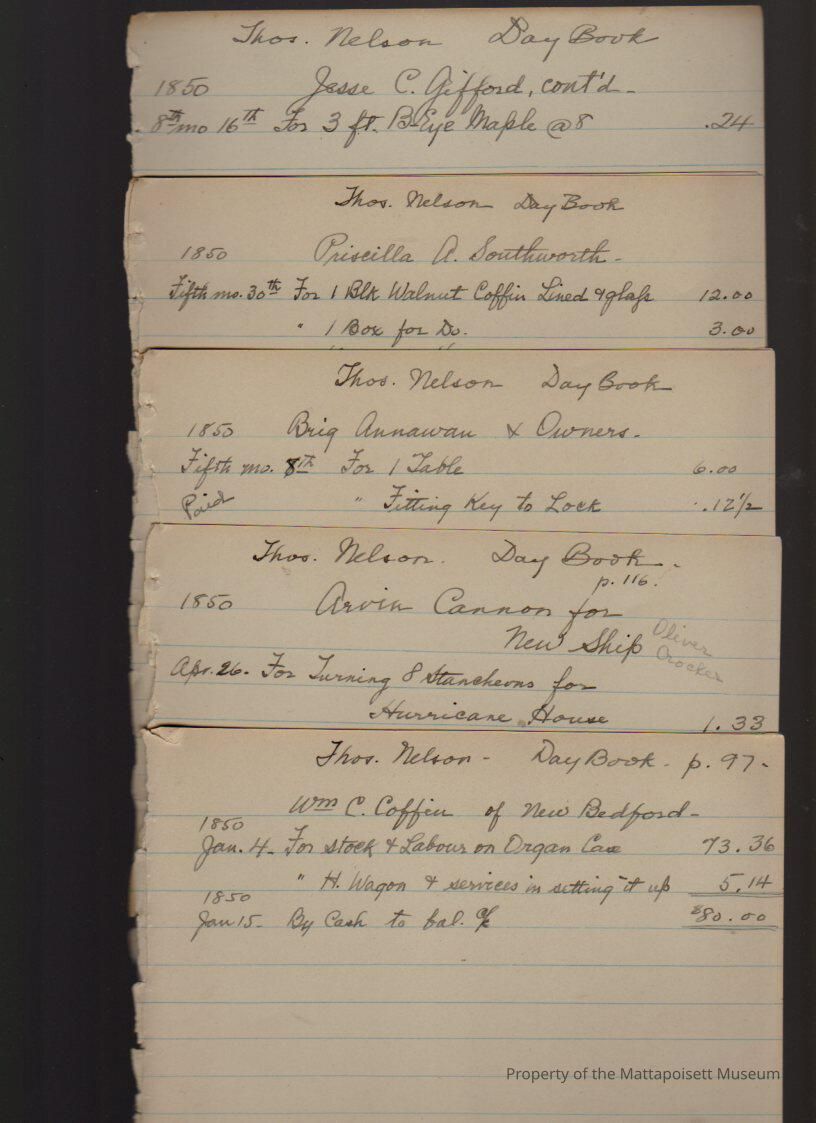 Thos. Nelson Day Book
1850 Jesse C. Gifford, cont'd -
8th mo 16th For 3 ft. B-Eye Maple @ 8 .24
Thos. Nelson Day Book
1850 Priscilla A. Southworth -
Fifth mo. 30th For 1 Blk Walnut Coffin Lined & glass 12.00
" 1 Box for Do. 3.00
Thos. Nelson Day Book
1850 Brig Annawan & Owners -
Fifth mo. 8th For 1 Table 6.00
Paid " Fitting Key to Lock .12 1/2
Thos. Nelson. Day Book -
p. 116.
1850 Arvin Cannon for
New Ship Oliver Crocker
Apr. 26 - For Turning 8 Stancheons for
Hurricane House 1.33
Thos. Nelson - Day Book - p. 97 -
Wm C. Coffin of New Bedford -
1850
Jan. 4 - For stock & Labour on Organ Case 73.36
" H. Wagon & services in setting it up 5.14
1850
Jan 15 - By Cash to bal. a/c $80.00
Property of the Mattapoisett Museum